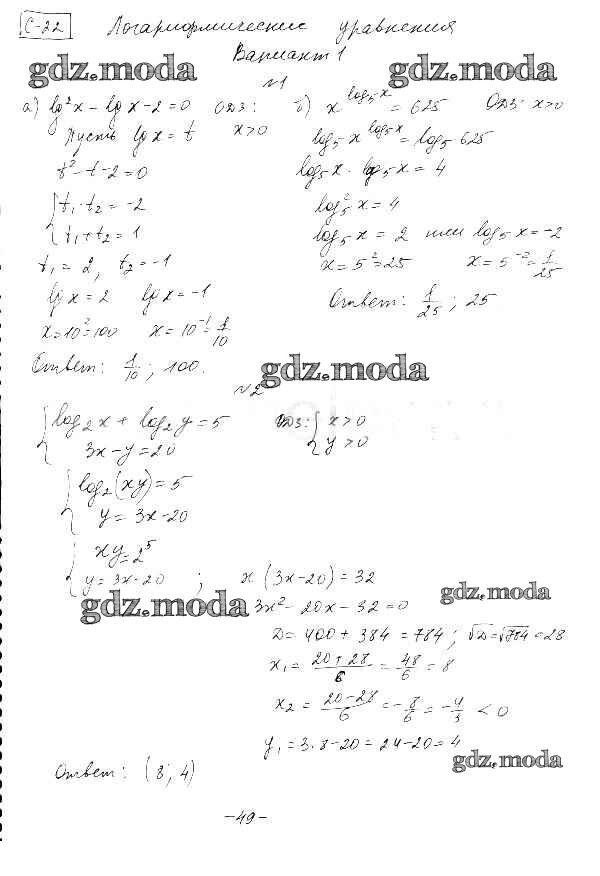 С-22 Логарифмические уравнения
Вариант 1
gdz.moda gdz.moda
№1
а) lg²x – lg x – 2 = 0 ОДЗ: x>0
Пусть lg x = t
t² – t – 2 = 0
{ t₁·t₂ = –2
t₁+t₂ = 1
t₁ = 2, t₂ = –1
lg x = 2 lg x = –1
x = 10² = 100 x = 10⁻¹ = 1/10
Ответ: 1/10 ; 100.
б) x^(log₅x) = 625 ОДЗ: x>0
log₅ x^(log₅x) = log₅ 625
log₅x · log₅x = 4
log₅²x = 4
log₅x = 2 или log₅x = –2
x = 5² = 25 x = 5⁻² = 1/25
Ответ: 1/25 ; 25
gdz.moda
№2
{ log₂x + log₂y = 5 ОДЗ: { x>0
3x – y = 20 y>0
{ log₂(xy) = 5
y = 3x – 20
{ xy = 2⁵
y = 3x – 20 ; x(3x–20) = 32
gdz.moda gdz.moda
3x² – 20x – 32 = 0
D = 400 + 384 = 784 ; √D = √784 = 28
x₁ = (20+28)/6 = 48/6 = 8
x₂ = (20–28)/6 = –8/6 = –4/3 < 0
y₁ = 3·8–20 = 24–20 = 4
gdz.moda
Ответ: (8; 4)
–49–